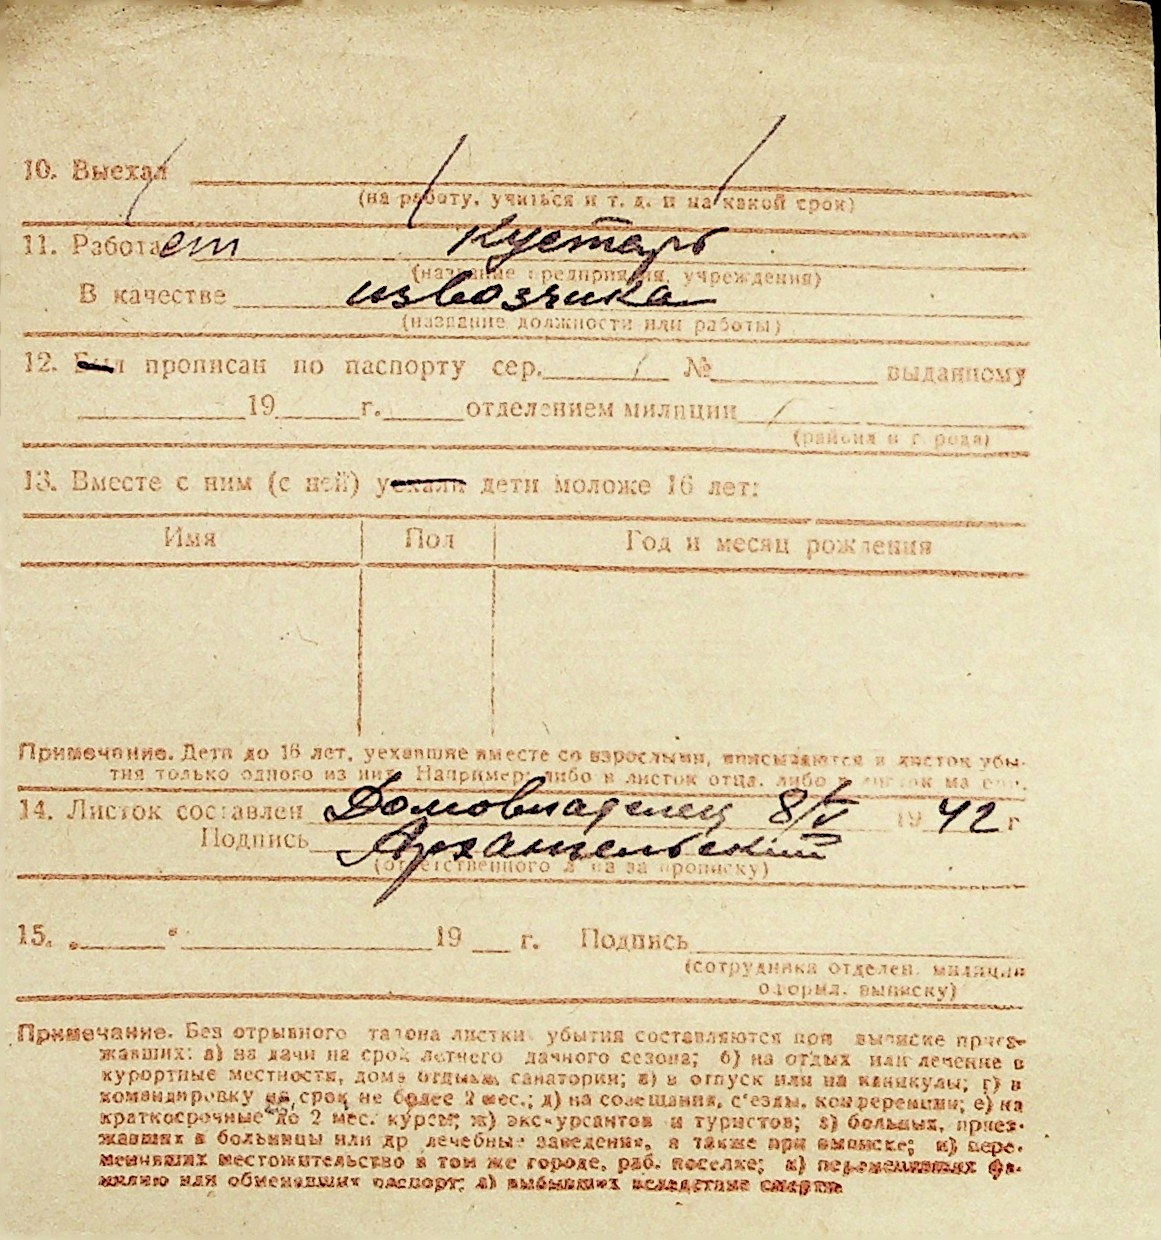 10. Выехал
(на работу, учиться и т. д. и на какой срок)
11. Работает Кустарь
(название предприятия, учреждения)
В качестве извозчика
(название должности или работы)
12. Был прописан по паспорту сер. № выданному
19 г. отделением милиции
(района и города)
13. Вместе с ним (с ней) уехали дети моложе 16 лет:
Имя Пол Год и месяц рождения
Примечание. Дети до 16 лет, уехавшие вместе со взрослыми, вписываются в листок убы-
тия только одного из них. Например: либо в листок отца, либо в листок ма ери.
14. Листок составлен Домовладелец 8/V 1942 г
Подпись Архангельский
(ответственного л ца за прописку)
15. „ “ 19 г. Подпись
(сотрудника отделен. милиции
оформл. выписку)
Примечание. Без отрывного талона листки убытия составляются при выписке приез-
жавших: а) на дачи на срок летнего дачного сезона; б) на отдых или лечение в
курортные местности, дома отдыха, санатории; в) в отпуск или на каникулы; г) в
командировку на срок не более 2 мес.; д) на совещания, с'езды, конференции; е) на
краткосрочные до 2 мес. курсы; ж) экскурсантов и туристов; з) больных, приез-
жавших в больницы или др лечебные заведения, а также при выписке; и) пере-
менивших местожительство в том же городе, раб. поселке; к) переменивших фа-
милию или обменявших паспорт; л) выбывших вследствие смерти